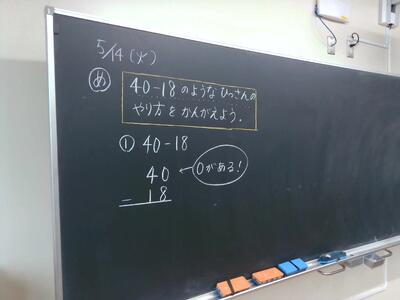 5/14(火)
め
40-18のような ひっさんの
やり方を かんがえよう.
① 40-18
40
0がある!
- 18